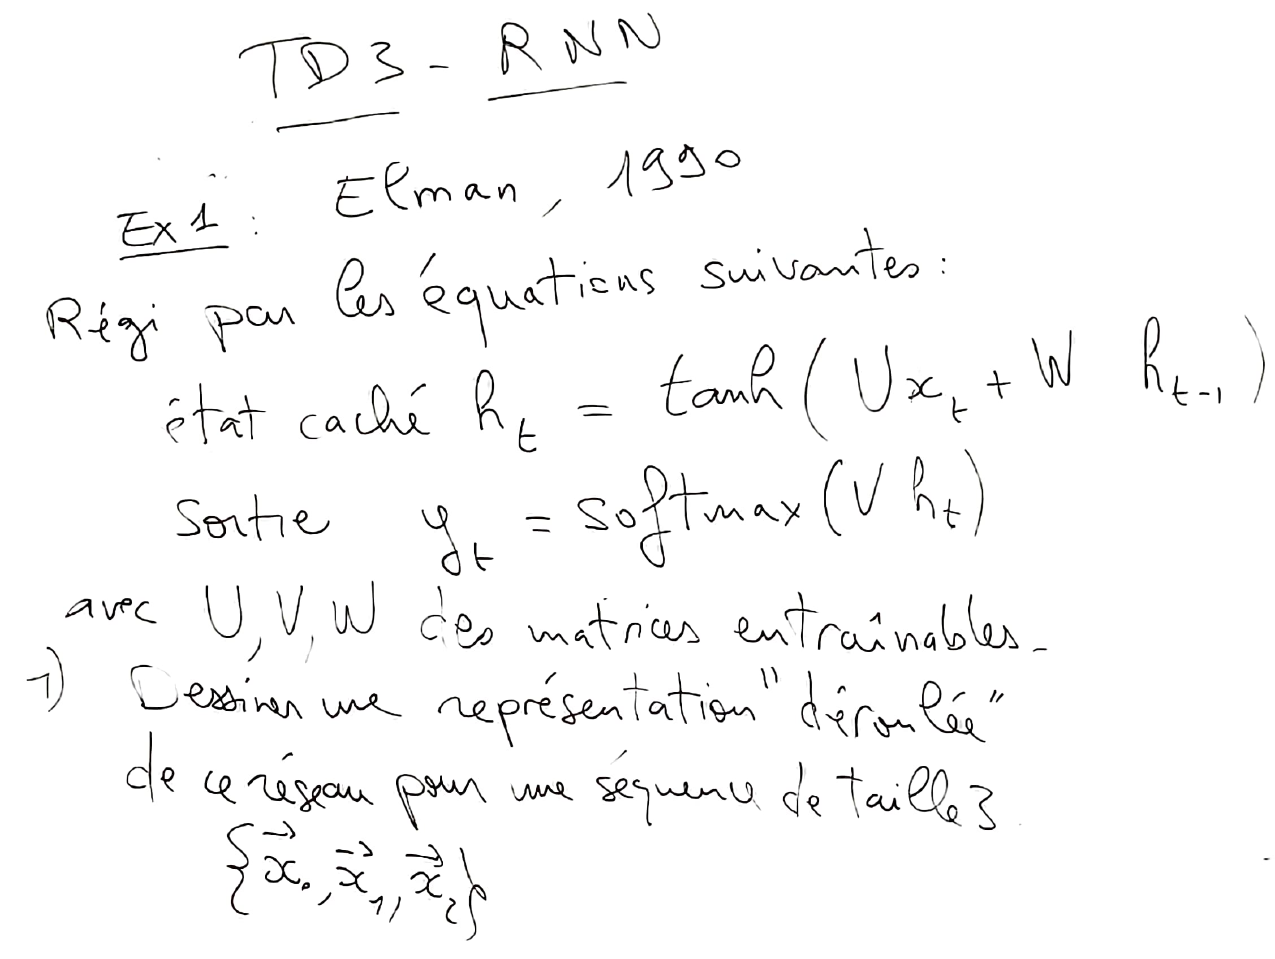 TD3 - RNN
Ex 1 : Elman, 1990
Régi par les équations suivantes :
état caché h_t = tanh ( U x_t + W h_{t-1} )
sortie y_t = softmax ( V h_t )
avec U, V, W des matrices entraînables.
1) Dessiner une représentation "déroulée"
de ce réseau pour une séquence de taille 3
{x⃗_0, x⃗_1, x⃗_2}